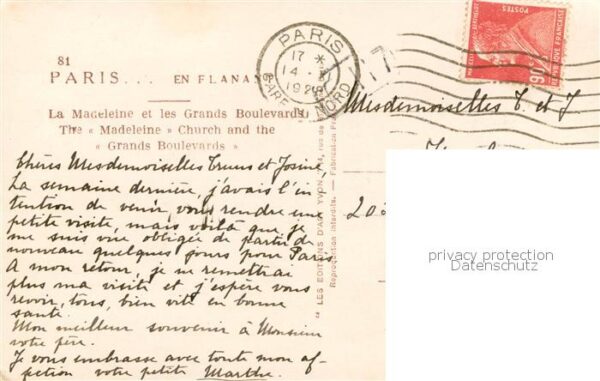 81
PARIS... EN FLANANT
La Madeleine et les Grands Boulevards
The « Madeleine » Church and the
« Grands Boulevards »
PARIS
17 *
14 -
192
GARE NORD
POSTES
90c
REPUBLIQUE FRANÇAISE
Mesdemoiselles T. et J
20
Chères Mesdemoiselles Truus et Josine,
La semaine dernière, j'avais l'in
tention de venir vous rendre une
petite visite, mais voilà que je
me suis vue obligée de partir de
nouveau quelques jours pour Paris
A mon retour, je ne remettrai
plus ma visite et j'espère vous
revoir, tous, bien vite en bonne
santé.
Mon meilleur souvenir à Monsieur
votre père.
Je vous embrasse avec toute mon af-
fection votre petite Marthe.
" LES EDITIONS D'ART YVON
Reproduction interdite. - Fabrication
privacy protection
Datenschutz